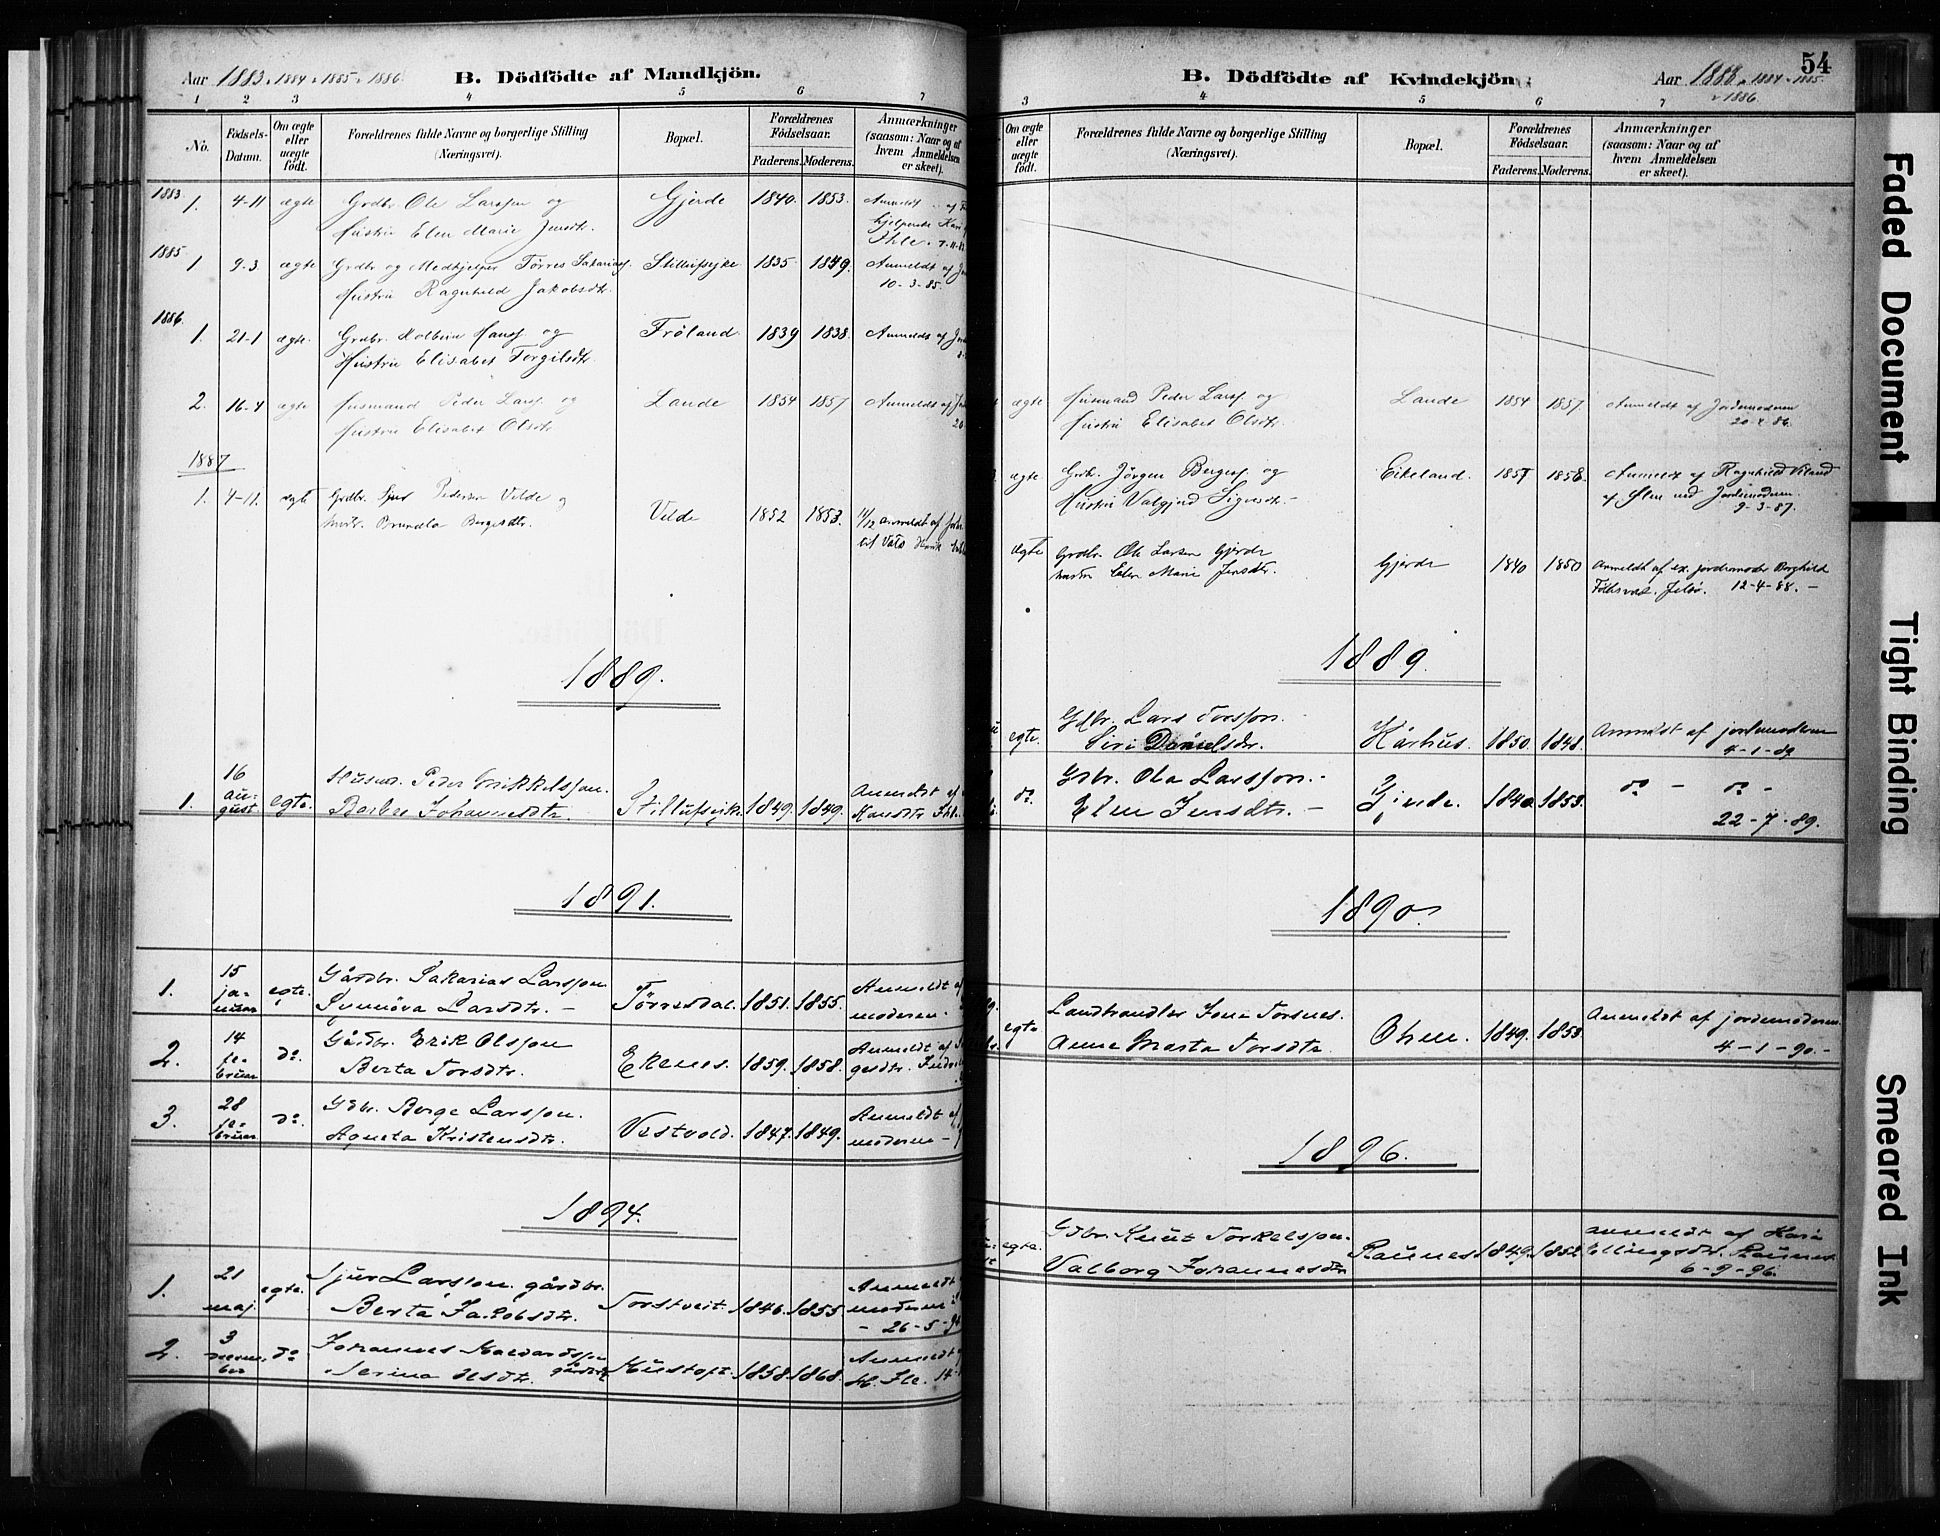 Aar 1883, 1884, 1885, 1886 B. Dödfödte af Mandkjön.
1 2 3 4 5 6 7
No. Födsels-Datum. Om ægte eller uægte födt. Forældrenes fulde Navne og borgerlige Stilling (Næringsvei). Bopæl. Forældrenes Födselsaar. Faderens. Moderens. Anmærkninger (saasom: Naar og af hvem Anmeldelsen er skeet).
1883.
1. 4-11 ægte Grdbr. Ole Larssen og Gjerde 1840. 1853. Anmeldt
Hustru Elen Marie Jensdtr.
1885
1 9-3 ægte Grdbr og Medhjelper Törres Sakarias. 1835. 1849. Anmeldt af
Hustru Ragnhild Jakobsdtr. 10-3-85.
1886.
1. 21-1 ægte. Grdbr. Kolbein Hans. og Fröland. 1839 1838. Anmeldt af
Hustru Elisabet Torgilsdtr.
2. 16-4 ægte Husmand Peder Lars. og Lande 1854 1857 Anmeldt af
Hustru Elisabet Olsdtr.
1887
1. 4-11. egte Grdbr. Sjur Pedersen Velde og Velde 1852 1853. 11/12 Anmeldt af
hustr. Brundla Bergesdtr. til Vats
1889.
16 august
1. egte. Husmd. Peder Erikkelsson. 1849. 1849. Anmeldt af
Barbro Johannesdtr.
1891.
1. 15 januar egte. Gårdbr. Sakarias Larsson Törresdal. 1851. 1855. Anmeldt af
Synnöva Larsdtr. - moderen.
2. 14 februar do. Gårdbr. Erik Olsson Ekenes. 1859. 1858. Anmeldt af
Berta Torsdtr.
3. 28 februar do. Gdbr. Berge Larsson. Vestvold. 1847. 1849. Anmeldt af
Agneta Kristensdtr. moderen -
1894.
1. 21 maj. egte. Sjur Larsson gårdbr. Torstveit. 1846. 1855. Anmeldt
Berta Jakobsdtr. moderen
- 26-5-94
2. 3 december do Johannes Gårdbr. 1858. 1868. Anmeldt
Serina Olsdtr.
54
B. Dödfödte af Kvindekjön. Aar 1883, 1884, 1885, 1886
3 4 5 6 7
Om ægte eller uægte födt. Forældrenes fulde Navne og borgerlige Stilling (Næringsvei). Bopæl. Forældrenes Födselsaar. Faderens. Moderens. Anmærkninger (saasom: Naar og af hvem Anmeldelsen er skeet).
ægte Husmand Peder Lars. og Lande 1854 1857. Anmeldt af Jordemoderen
Hustru Elisabet Olsdtr. 20-4-86.
ægte Grdbr. Jörgen Berges. og Eikeland. 1857 1858. Anmeldt af Ragnhild
Hustru Valgjerd Sigvsdtr. - af Ölen ved Jordemoderen.
9-3-87.
Ægte Grdbr. Ole Larsen Gjerde Gjerde 1840 1850 Anmeldt af ex. jordemoder Borghild
hustru Elen Marie Jensdtr. 12-4-88. -
1889.
egte. Gdbr. Lars Torsson. Kårhus. 1850. 1848. Anmeldt af jordemoderen
Siri Danielsdtr. 4-1-89
do. Gdbr. Ola Larsson. - Gjerde. 1840. 1853. do - do -
Elen Jensdtr. - 22-7-89.
1890.
egte Landhandler Jone Torsnes. Ölen. 1849. 1853. Anmeldt af jordemoderen.
Anna Marta Torsdtr. 4-1-90.-
1896.
egte. Gdbr. Knut Torkelsson. Raunes 1849. 1852. Anmeldt af Kari
Valborg Johannesdtr Ellingsdtr. Raunes.
6-9-96.
Faded Document
Tight Binding
Smeared Ink